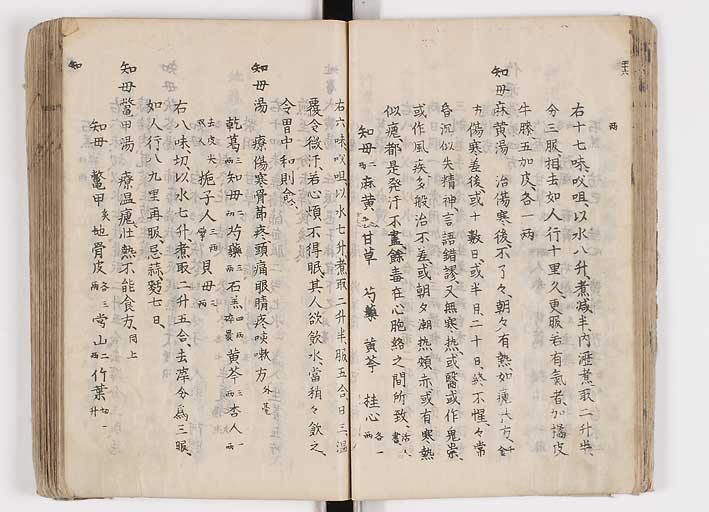 右十七味㕮咀以水八升煮减半内酒煮取二升半
分三服相去如人行十里久更服若有氣者加橘皮
牛膝五加皮各一两
知母麻黄湯 治傷寒後不了々朝夕有熱如瘧状方
方傷寒差後或十数日或半月二十日終不惺々常
昏沉似失精神言語錯謬又無寒熱或醫或作鬼祟
或作風疾多般治不差或朝夕潮熱頬赤或有寒熱
似瘧都是発汗不盡餘毒在心胞絡之間所致
知母二两 麻黄 甘草 芍藥 黄芩 桂心各一两
右六味㕮咀以水七升煮取二升半服五合日三温
覆令微汗若心煩不得眠其人欲飲水當稍々飲之
令胃中和則愈
知母湯 療傷寒骨節疼頭痛眼睛疼咳嗽方外臺
乾葛三两 知母二两 芍藥三两 石羔四两碎 黄芩三两 杏人一两
去皮尖 梔子人三两 貝母三两
右八味切以水七升煮取二升五合去滓分為三服
如人行八九里再服忌蒜麪七日
知母鱉甲湯 療温瘧壮熱不能食方同上
知母 鱉甲炙 地骨皮各三两 常山二两 竹葉切一升